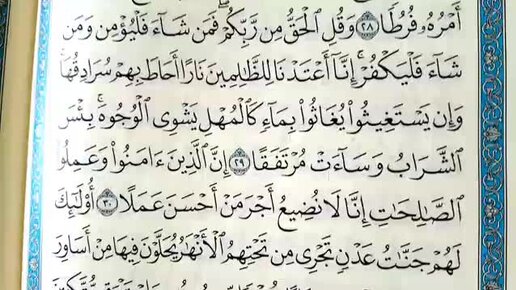 أَمْرُهُۥ فُرُطًا ٢٨ وَقُلِ ٱلْحَقُّ مِن رَّبِّكُمْ ۖ فَمَن شَآءَ فَلْيُؤْمِن وَمَن
شَآءَ فَلْيَكْفُرْ ۚ إِنَّآ أَعْتَدْنَا لِلظَّـٰلِمِينَ نَارًا أَحَاطَ بِهِمْ سُرَادِقُهَا ۚ
وَإِن يَسْتَغِيثُوا۟ يُغَاثُوا۟ بِمَآءٍ كَٱلْمُهْلِ يَشْوِى ٱلْوُجُوهَ ۚ بِئْسَ
ٱلشَّرَابُ وَسَآءَتْ مُرْتَفَقًا ٢٩ إِنَّ ٱلَّذِينَ ءَامَنُوا۟ وَعَمِلُوا۟
ٱلصَّـٰلِحَـٰتِ إِنَّا لَا نُضِيعُ أَجْرَ مَنْ أَحْسَنَ عَمَلًا ٣٠ أُو۟لَـٰٓئِكَ
لَهُمْ جَنَّـٰتُ عَدْنٍ تَجْرِى مِن تَحْتِهِمُ ٱلْأَنْهَـٰرُ يُحَلَّوْنَ فِيهَا مِنْ أَسَاوِرَ